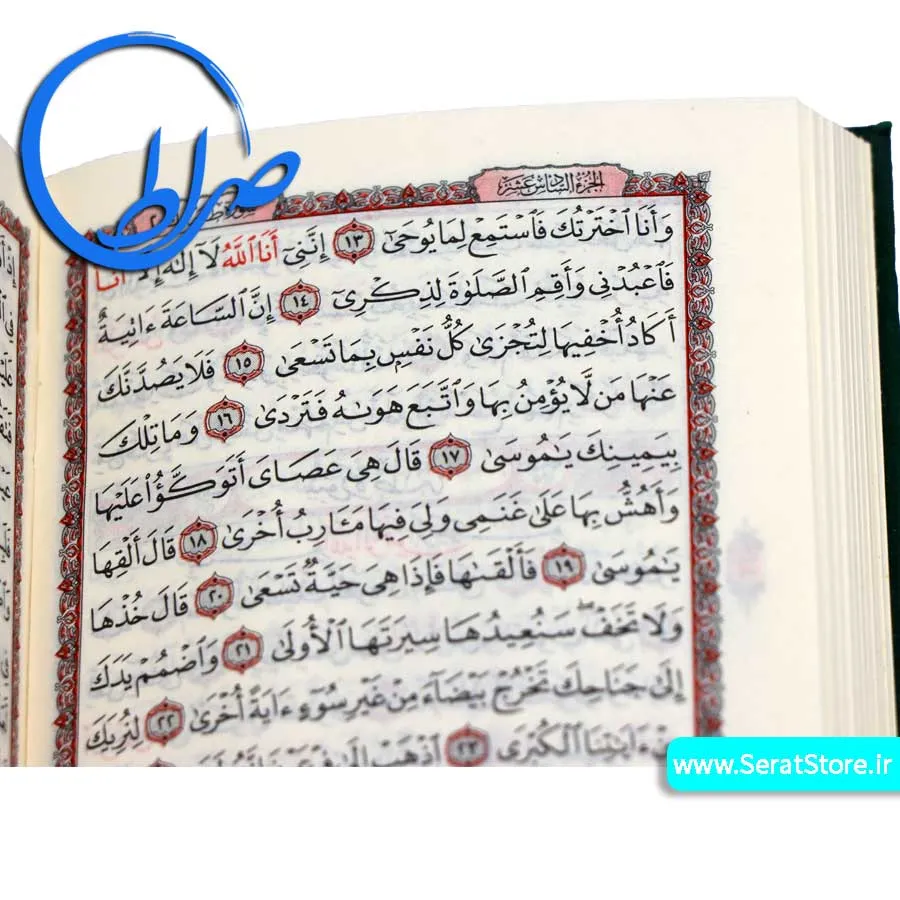 صراط
الجزء السادس عشر
وَأَنَا ٱخْتَرْتُكَ فَٱسْتَمِعْ لِمَا يُوحَىٰٓ ١٣ إِنَّنِىٓ أَنَا ٱللَّهُ لَآ إِلَٰهَ إِلَّآ أَنَا۠
فَٱعْبُدْنِى وَأَقِمِ ٱلصَّلَوٰةَ لِذِكْرِىٓ ١٤ إِنَّ ٱلسَّاعَةَ ءَاتِيَةٌ
أَكَادُ أُخْفِيهَا لِتُجْزَىٰ كُلُّ نَفْسٍۭ بِمَا تَسْعَىٰ ١٥ فَلَا يَصُدَّنَّكَ
عَنْهَا مَن لَّا يُؤْمِنُ بِهَا وَٱتَّبَعَ هَوَىٰهُ فَتَرْدَىٰ ١٦ وَمَا تِلْكَ
بِيَمِينِكَ يَٰمُوسَىٰ ١٧ قَالَ هِىَ عَصَاىَ أَتَوَكَّؤُا۟ عَلَيْهَا
وَأَهُشُّ بِهَا عَلَىٰ غَنَمِى وَلِىَ فِيهَا مَـَٔارِبُ أُخْرَىٰ ١٨ قَالَ أَلْقِهَا
يَٰمُوسَىٰ ١٩ فَأَلْقَىٰهَا فَإِذَا هِىَ حَيَّةٌ تَسْعَىٰ ٢٠ قَالَ خُذْهَا
وَلَا تَخَفْ ۖ سَنُعِيدُهَا سِيرَتَهَا ٱلْأُولَىٰ ٢١ وَٱضْمُمْ يَدَكَ
إِلَىٰ جَنَاحِكَ تَخْرُجْ بَيْضَآءَ مِنْ غَيْرِ سُوٓءٍ ءَايَةً أُخْرَىٰ ٢٢ لِنُرِيَكَ
مِنْ ءَايَٰتِنَا ٱلْكُبْرَى ٢٣ ٱذْهَبْ إِلَىٰ
www.SeratStore.ir